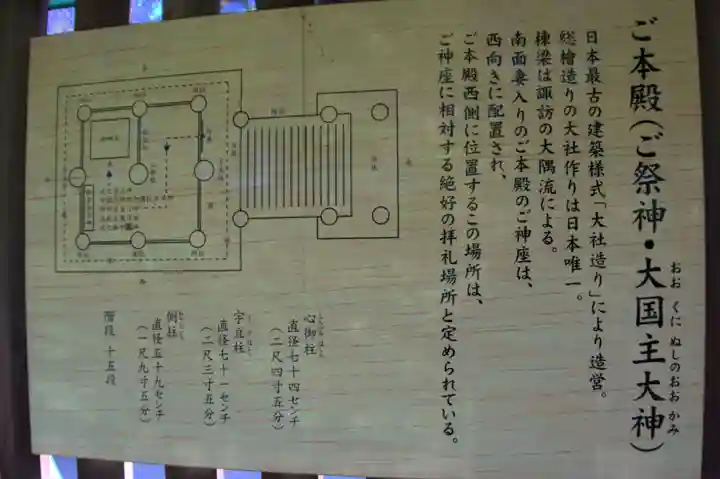 ご本殿(ご祭神・大国主大神)
おおくにぬしのおおかみ
日本最古の建築様式「大社造り」により造営。
総檜造りの大社作りは日本唯一。
棟梁は諏訪の大隅流による。
南面妻入りのご本殿のご神座は、
西向きに配置され、
ご本殿西側に位置するこの場所は、
ご神座に相対する絶好の拝礼場所と定められている。
心御柱
直径七十四センチ
(二尺四寸五分)
宇豆柱
直径七十一センチ
(二尺三寸五分)
側柱
直径五十九センチ
(一尺九寸五分)
階段 十五段